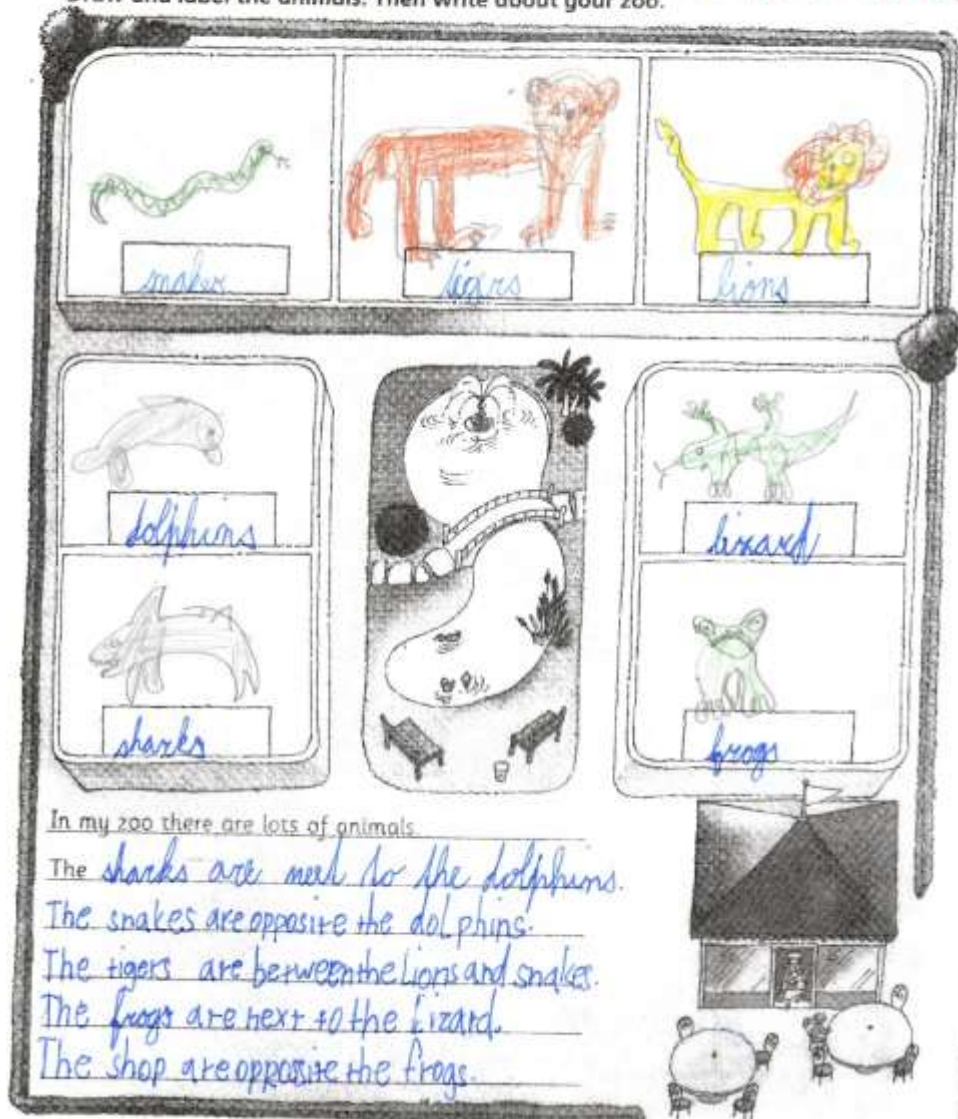 Draw and label the animals. Then write about your zoo.
snakes
tigers
lions
dolphins
lizard
sharks
frogs
In my zoo there are lots of animals
The sharks are next to the dolphins.
The snakes are opposite the dolphins.
The tigers are between the Lions and snakes.
The frogs are next to the Lizard.
The shop are opposite the frogs.